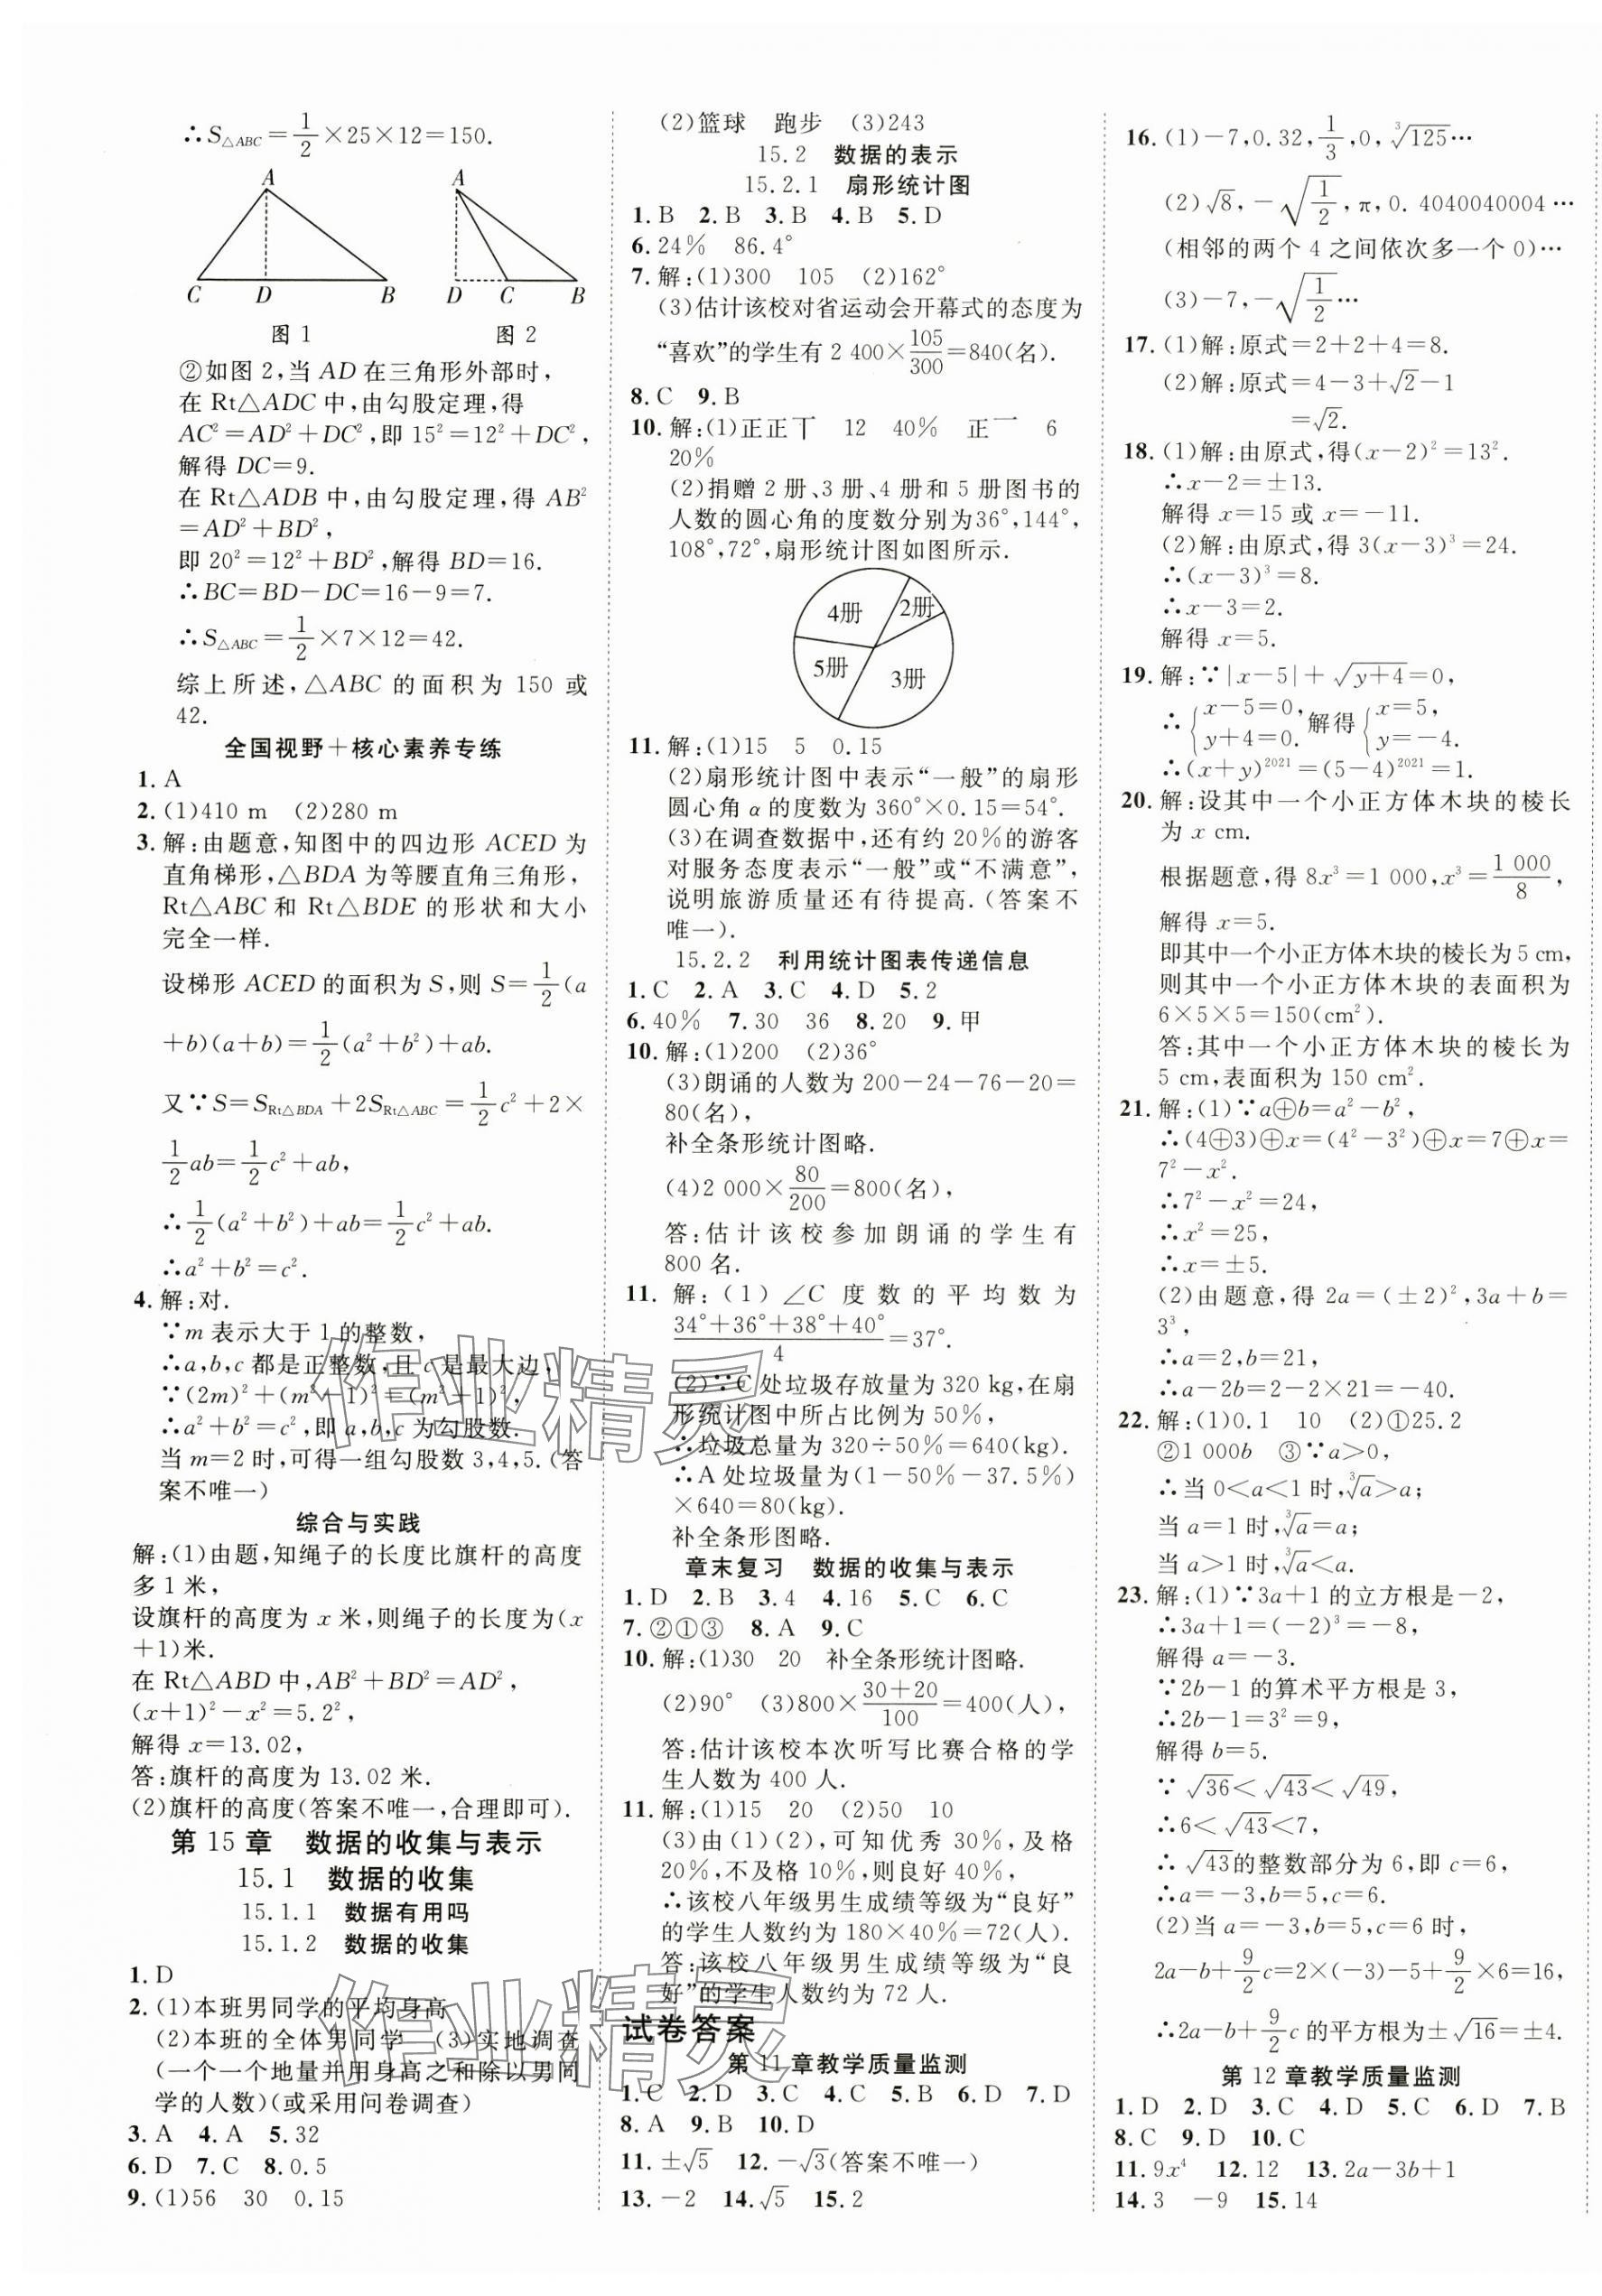 ∴S△ABC=1/2×25×12=150.
A
C D B
图1
A
D C B
图2
②如图2,当AD在三角形外部时,
在Rt△ADC中,由勾股定理,得
AC²=AD²+DC²,即15²=12²+DC²,
解得DC=9.
在Rt△ADB中,由勾股定理,得AB²
=AD²+BD²,
即20²=12²+BD²,解得BD=16.
∴BC=BD-DC=16-9=7.
∴S△ABC=1/2×7×12=42.
综上所述,△ABC的面积为150或
42.
全国视野+核心素养专练
1.A
2.(1)410 m (2)280 m
3.解:由题意,知图中的四边形ACED为
直角梯形,△BDA为等腰直角三角形,
Rt△ABC和Rt△BDE的形状和大小
完全一样.
设梯形ACED的面积为S,则S=1/2(a
+b)(a+b)=1/2(a²+b²)+ab.
又∵S=SRt△BDA+2SRt△ABC=1/2c²+2×
1/2ab=1/2c²+ab,
∴1/2(a²+b²)+ab=1/2c²+ab.
∴a²+b²=c².
4.解:对.
∵m表示大于1的整数,
∴a,b,c都是正整数,且c是最大边,
∵(2m)²+(m²-1)²=(m²+1)²,
∴a²+b²=c²,即a,b,c为勾股数.
当m=2时,可得一组勾股数3,4,5.(答
案不唯一)
综合与实践
解:(1)由题,知绳子的长度比旗杆的高度
多1米,
设旗杆的高度为x米,则绳子的长度为(x
+1)米.
在Rt△ABD中,AB²+BD²=AD²,
(x+1)²-x²=5.2²,
解得x=13.02,
答:旗杆的高度为13.02米.
(2)旗杆的高度(答案不唯一,合理即可).
第15章 数据的收集与表示
15.1 数据的收集
15.1.1 数据有用吗
15.1.2 数据的收集
1.D
2.(1)本班男同学的平均身高
(2)本班的全体男同学 (3)实地调查
(一个一个地量并用身高之和除以男同
学的人数)(或采用问卷调查)
3.A 4.A 5.32
6.D 7.C 8.0.5
9.(1)56 30 0.15
(2)篮球 跑步 (3)243
15.2 数据的表示
15.2.1 扇形统计图
1.B 2.B 3.B 4.B 5.D
6.24% 86.4°
7.解:(1)300 105 (2)162°
(3)估计该校对省运动会开幕式的态度为
“喜欢”的学生有2 400×105/300=840(名).
8.C 9.B
10.解:(1)正正丅 12 40% 正一 6
20%
(2)捐赠2册、3册、4册和5册图书的
人数的圆心角的度数分别为36°,144°,
108°,72°,扇形统计图如图所示.
4册 2册
5册 3册
11.解:(1)15 5 0.15
(2)扇形统计图中表示“一般”的扇形
圆心角α的度数为360°×0.15=54°.
(3)在调查数据中,还有约20%的游客
对服务态度表示“一般”或“不满意”,
说明旅游质量还有待提高.(答案不
唯一).
15.2.2 利用统计图表传递信息
1.C 2.A 3.C 4.D 5.2
6.40% 7.30 36 8.20 9.甲
10.解:(1)200 (2)36°
(3)朗诵的人数为200-24-76-20=
80(名),
补全条形统计图略.
(4)2 000×80/200=800(名),
答:估计该校参加朗诵的学生有
800名.
11.解:(1)∠C度数的平均数为
(34°+36°+38°+40°)/4=37°.
(2)∵C处垃圾存放量为320 kg,在扇
形统计图中所占比例为50%,
∴垃圾总量为320÷50%=640(kg).
∴A处垃圾量为(1-50%-37.5%)
×640=80(kg).
补全条形图略.
章末复习 数据的收集与表示
1.D 2.B 3.4 4.16 5.C 6.C
7.②①③ 8.A 9.C
10.解:(1)30 20 补全条形统计图略.
(2)90° (3)800×(30+20)/100=400(人),
答:估计该校本次听写比赛合格的学
生人数为400人.
11.解:(1)15 20 (2)50 10
(3)由(1)(2),可知优秀30%,及格
20%,不及格10%,则良好40%,
∴该校八年级男生成绩等级为“良好”
的学生人数约为180×40%=72(人).
答:该校八年级男生成绩等级为“良
好”的学生人数约为72人.
试卷答案
第11章教学质量监测
1.C 2.D 3.C 4.C 5.B 6.D 7.D
8.A 9.B 10.D
11.±√5 12.-√3(答案不唯一)
13.-2 14.√5 15.2
16.(1)-7,0.32,1/3,0,∛125…
(2)√8,-√(1/2),π,0.4040040004…
(相邻的两个4之间依次多一个0)…
(3)-7,-√(1/2)…
17.(1)解:原式=2+2+4=8.
(2)解:原式=4-3+√2-1
=√2.
18.(1)解:由原式,得(x-2)²=13².
∴x-2=±13.
解得x=15或x=-11.
(2)解:由原式,得3(x-3)³=24.
∴(x-3)³=8.
∴x-3=2.
解得x=5.
19.解:∵|x-5|+√(y+4)=0,
∴{x-5=0, y+4=0. 解得{x=5, y=-4.
∴(x+y)²⁰²¹=(5-4)²⁰²¹=1.
20.解:设其中一个小正方体木块的棱长
为x cm.
根据题意,得8x³=1 000,x³=1 000/8,
解得x=5.
即其中一个小正方体木块的棱长为5 cm,
则其中一个小正方体木块的表面积为
6×5×5=150(cm²).
答:其中一个小正方体木块的棱长为
5 cm,表面积为150 cm².
21.解:(1)∵a⊕b=a²-b²,
∴(4⊕3)⊕x=(4²-3²)⊕x=7⊕x=
7²-x².
∴7²-x²=24,
∴x²=25,
∴x=±5.
(2)由题意,得2a=(±2)²,3a+b=
3³,
∴a=2,b=21,
∴a-2b=2-2×21=-40.
22.解:(1)0.1 10 (2)①25.2
②1 000b ③∵a>0,
∴当0<a<1时,∛a>a;
当a=1时,∛a=a;
当a>1时,∛a<a.
23.解:(1)∵3a+1的立方根是-2,
∴3a+1=(-2)³=-8,
解得a=-3.
∵2b-1的算术平方根是3,
∴2b-1=3²=9,
解得b=5.
∵√36<√43<√49,
∴6<√43<7,
∴√43的整数部分为6,即c=6,
∴a=-3,b=5,c=6.
(2)当a=-3,b=5,c=6时,
2a-b+9/2c=2×(-3)-5+9/2×6=16,
∴2a-b+9/2c的平方根为±√16=±4.
第12章教学质量监测
1.D 2.D 3.C 4.D 5.C 6.D 7.B
8.C 9.D 10.C
11.9x⁴ 12.12 13.2a-3b+1
14.3 -9 15.14
作业精灵
作业精灵